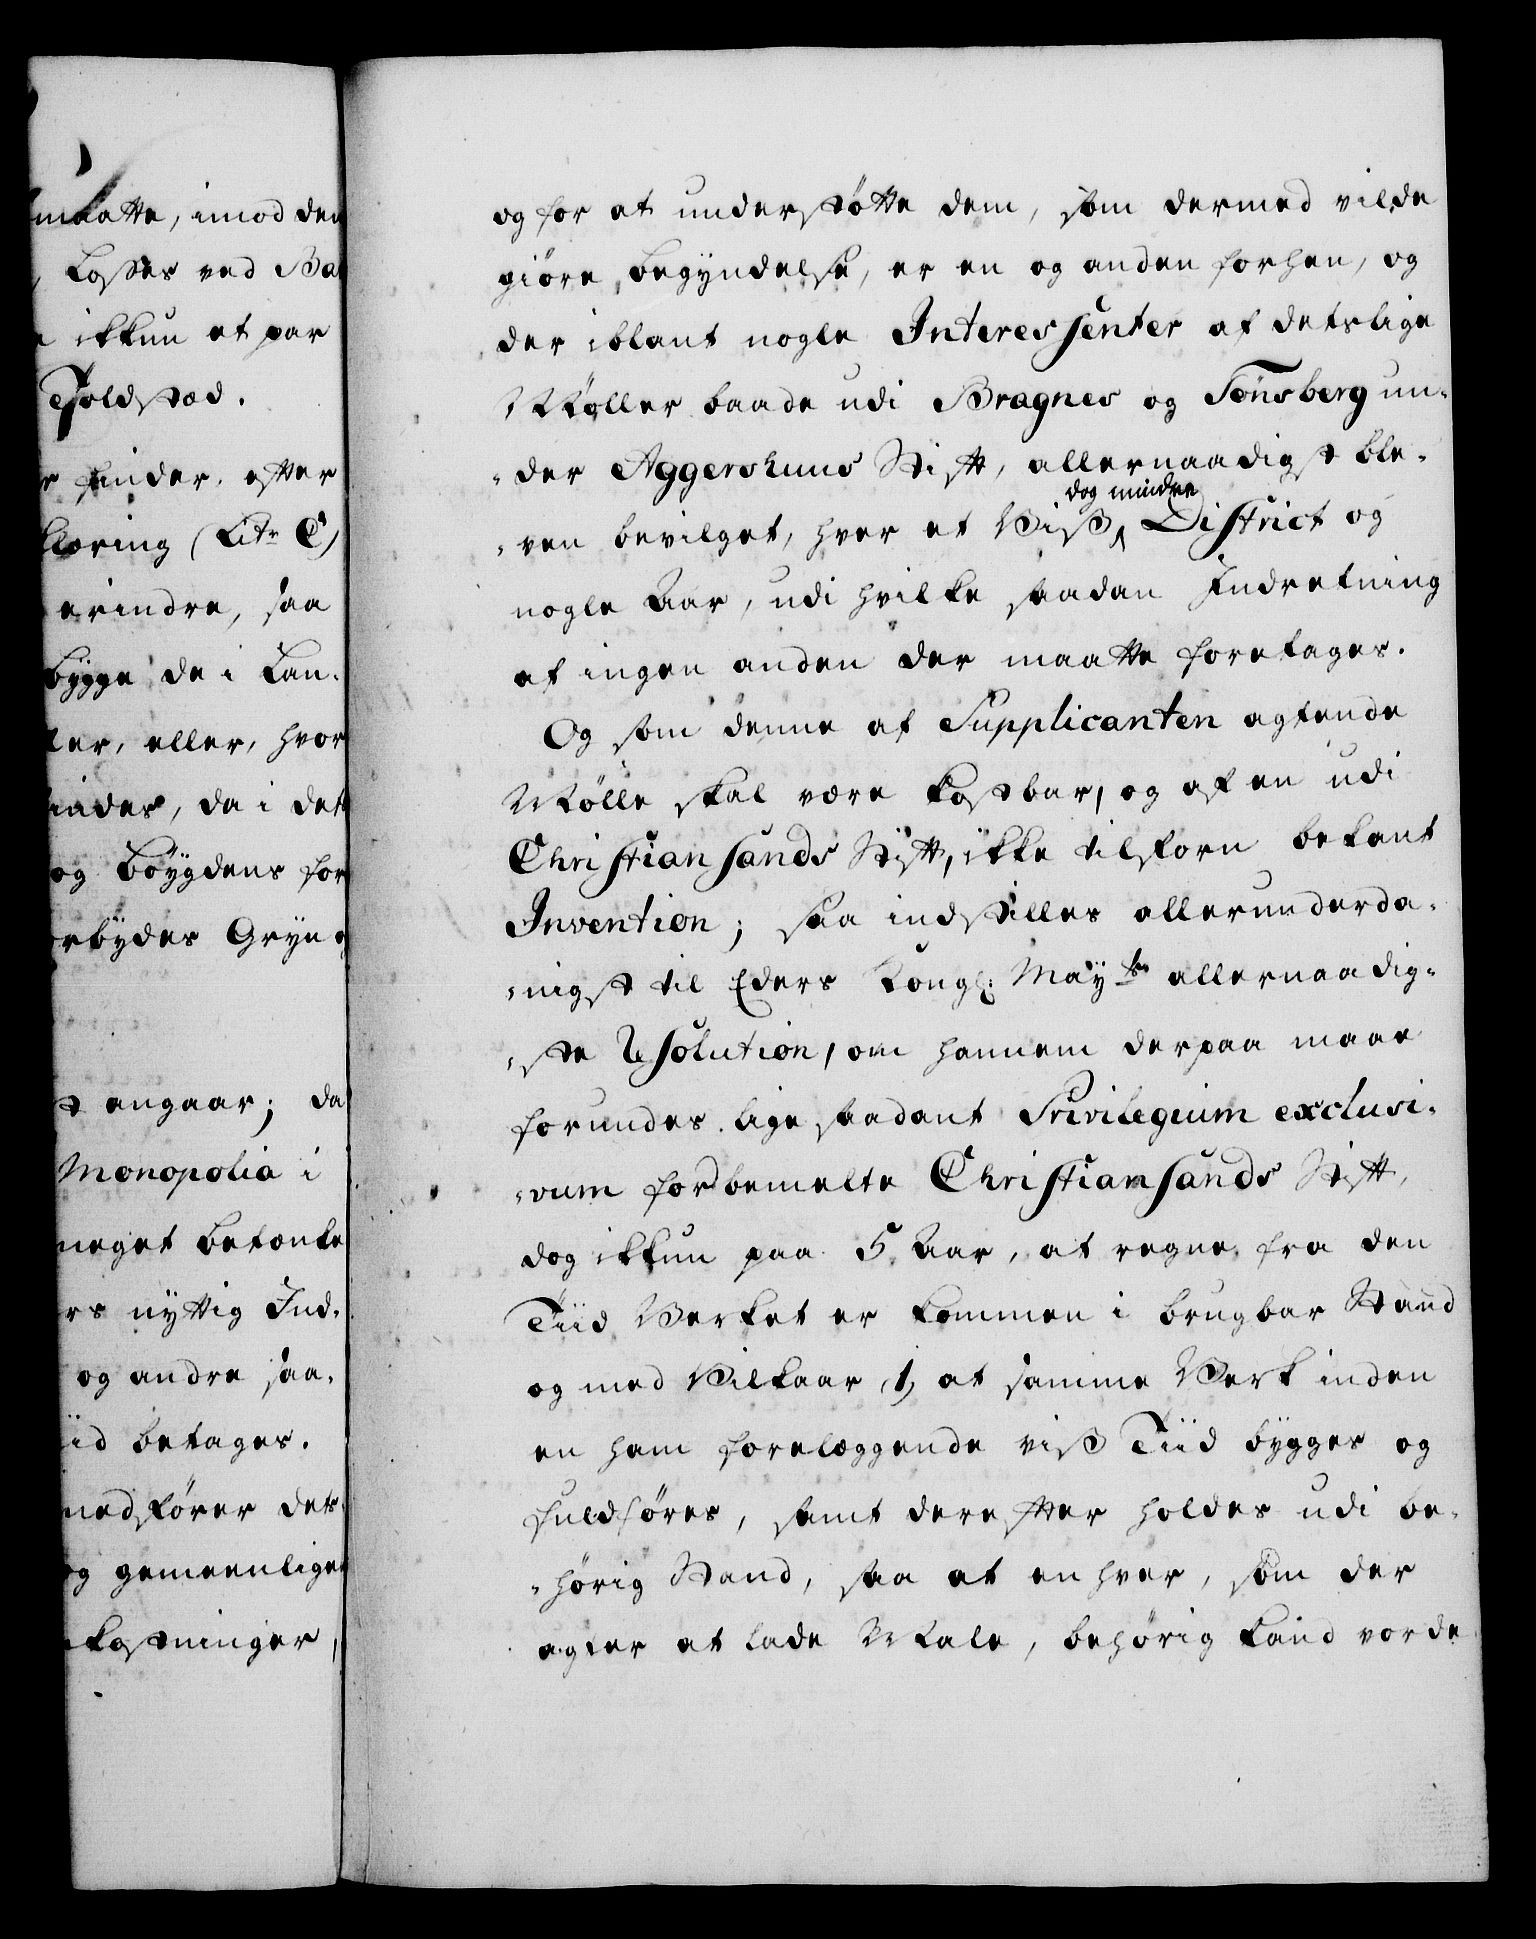 maatte, imod den
Losses ved Ba
ikkun et par
Toldsted.
finder, efter
klæring (Litr C)
erindre, saa
bygge de i Lan-
ler, eller, hvor
findes, da i det
og Böygdens for
orbydes Gryn o
angaar; da
Monopolia i
meget betænke
rs nyttig Ind-
og andre saa-
iid betages.
medfører det
og gemeenligen
kostninger,
og for at understøtte dem, som dermed vilde
giøre begyndelse, er en og anden forhen, og
der iblant nogle Interessenter af detslige
Møller baade udi Bragnes og Tønsberg un-
-der Aggershuus Stift, allernaadigst ble-
dog mindre
-ven bevilget, hver et Viß District og
nogle Aar, udi hvilke saadan Indretning
af ingen anden der maatte foretages.
Og som denne af Supplicanten agtende
Mølle skal være kostbar, og af en udi
Christiansands Stift, ikke tilforn bekant
Invention; saa indstilles allerunderda-
-nigst til Eders Kongl: Mayts allernaadig-
-ste Resolution, om hannem derpaa maae
forundes lige saadant Privilegium exclusi-
-vum for bemelte Christiansands Stift,
dog ikkun paa 5 Aar, at regne fra den
Tiid Verket er kommen i brugbar Stand
og med Vilkaar, 1, at samme Verk inden
en ham forelæggende viß Tiid bygges og
fuldføres, samt derefter holdes udi be-
-hørig Stand, saa at enhver, som der
agter at lade Male, behørig kand vorde